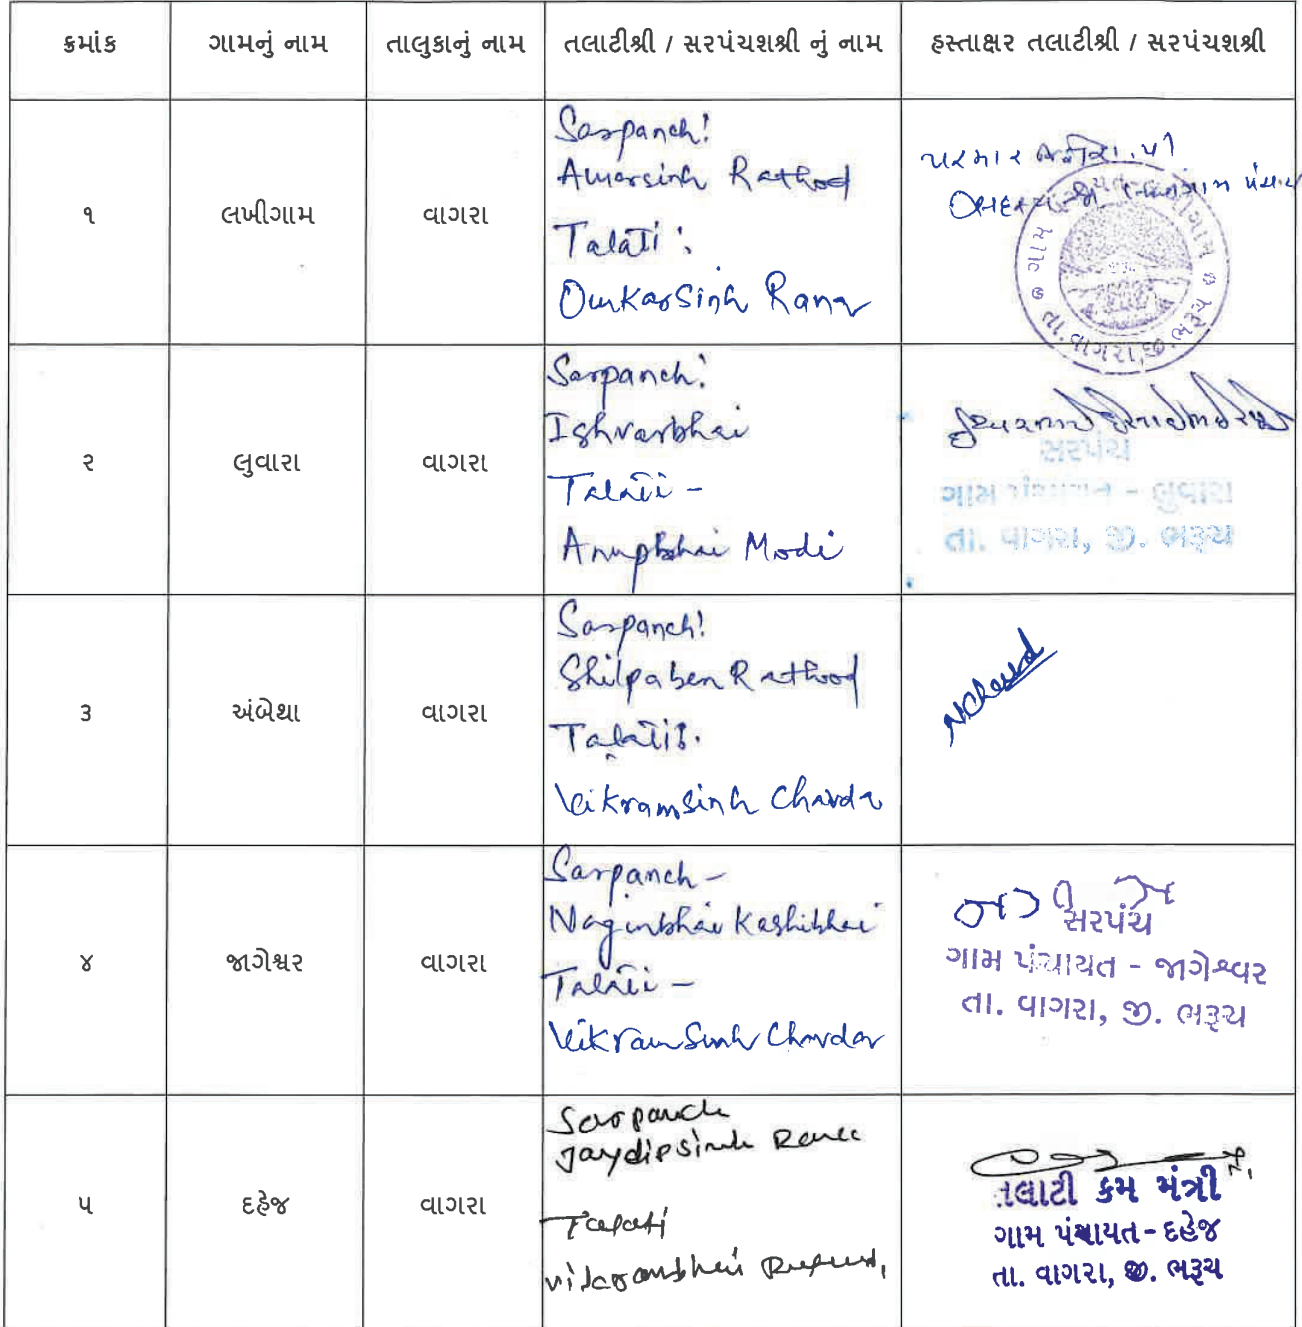 ક્રમાંક ગામનું નામ તાલુકાનું નામ તલાટીશ્રી / સરપંચશશ્રી નું નામ હસ્તાક્ષર તલાટીશ્રી / સરપંચશશ્રી
૧ લખીગામ વાગરા
Sarpanch:
Amarsinh Rathod
Talati:
Omkarsinh Rana
પરમાર
ગામ
તા. વાગરા, જી. ભરૂચ
૨ લુવારા વાગરા
Sarpanch:
Ishvarbhai
Talati -
Anupbhai Modi
સરપંચ
ગામ પંચાયત - લુવારા
તા. વાગરા, જી. ભરૂચ
૩ અંબેથા વાગરા
Sarpanch:
Shilpaben Rathod
Talati:
Vikramsinh Chavda
૪ જાગેશ્વર વાગરા
Sarpanch -
Naginbhai Kashibhai
Talati -
Vikramsinh Chavda
સરપંચ
ગામ પંચાયત - જાગેશ્વર
તા. વાગરા, જી. ભરૂચ
૫ દહેજ વાગરા
Sarpanch
Jaydipsinh Rana
Talati
તલાટી કમ મંત્રી
ગામ પંચાયત - દહેજ
તા. વાગરા, જી. ભરૂચ